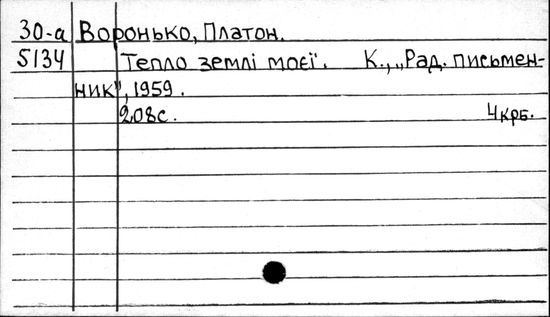 30-а Воронько, Платон.
5134 Тепло землі моєї. К., „Рад. письмен-
ник", 1959.
208с. 4крб.